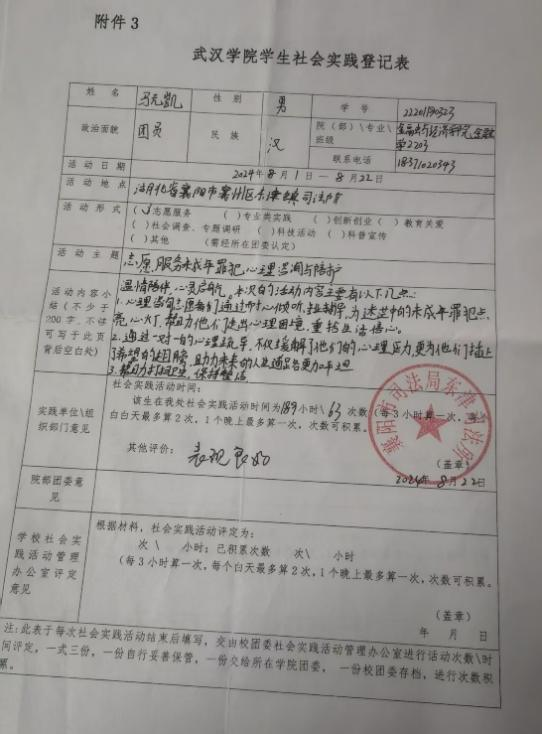 附件 3
武汉学院学生社会实践登记表
姓 名 马克凯 性 别 男 学 号 2220190323
政治面貌 团员 民 族 汉 院（部）\专业\班级 2203
联系电话 18371020343
活动日期 2024年8月1日 — 8月22日
活动地点 湖北省襄阳市襄州区东津镇司法所
活动形式 (√)志愿服务 ( )专业类实践 ( )创新创业 ( )教育关爱
( )社会调查、专题调研 ( )科技活动 ( )科普宣传
( )其他 （需经所在团委认定）
活动主题 志愿服务未成年罪犯心理咨询与陪护
活动内容小结（不少于200字，不够可写于此页背后空白处）
温情陪伴，心灵启航。本次的活动内容主要有以下几点：
1.心理咨询志愿者们通过耐心倾听，为迷茫中的未成年罪犯点
亮心灯，帮助他们走出心理困境，重拾生活信心。
2.通过一对一的心理疏导，不仅缓解了他们的心理压力，更为他们插上
了希望的翅膀，助力未来的人生道路更加平坦
3.帮助打扫卫生，保持整洁
实践单位\组织部门意见
社会实践活动时间：
该生在我处社会实践活动时间为189小时\63次数（每3小时算一次，每个
白天最多算2次，1个晚上最多算一次，次数可积累。
其他评价： 表现良好
（盖章）
2024年8月22日
襄阳市司法局东津司法所
院部团委意见
学校社会实践活动管理办公室评定意见
根据材料，社会实践活动评定为：
次 \ 小时；已积累次数 次\ 小时
（每3小时算一次，每个白天最多算2次，1个晚上最多算一次，次数可积累。
（盖章）
年 月 日
注：此表于每次社会实践活动结束后填写，交由校团委社会实践活动管理办公室进行活动次数\时
间评定，一式三份，一份自行妥善保管，一份交给所在学院团委， 一份校团委存档，进行次数积
累。